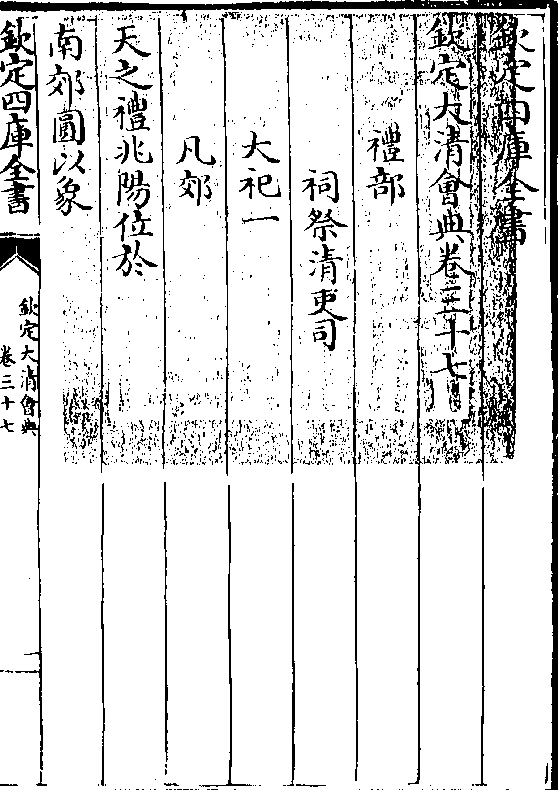 欽定四庫全書
欽定大清會典卷三十七
禮部
祠祭清吏司
大祀一
凡郊
天之禮兆陽位於
南郊圓以象
欽定四庫全書
欽定大清會典
卷三十七
一